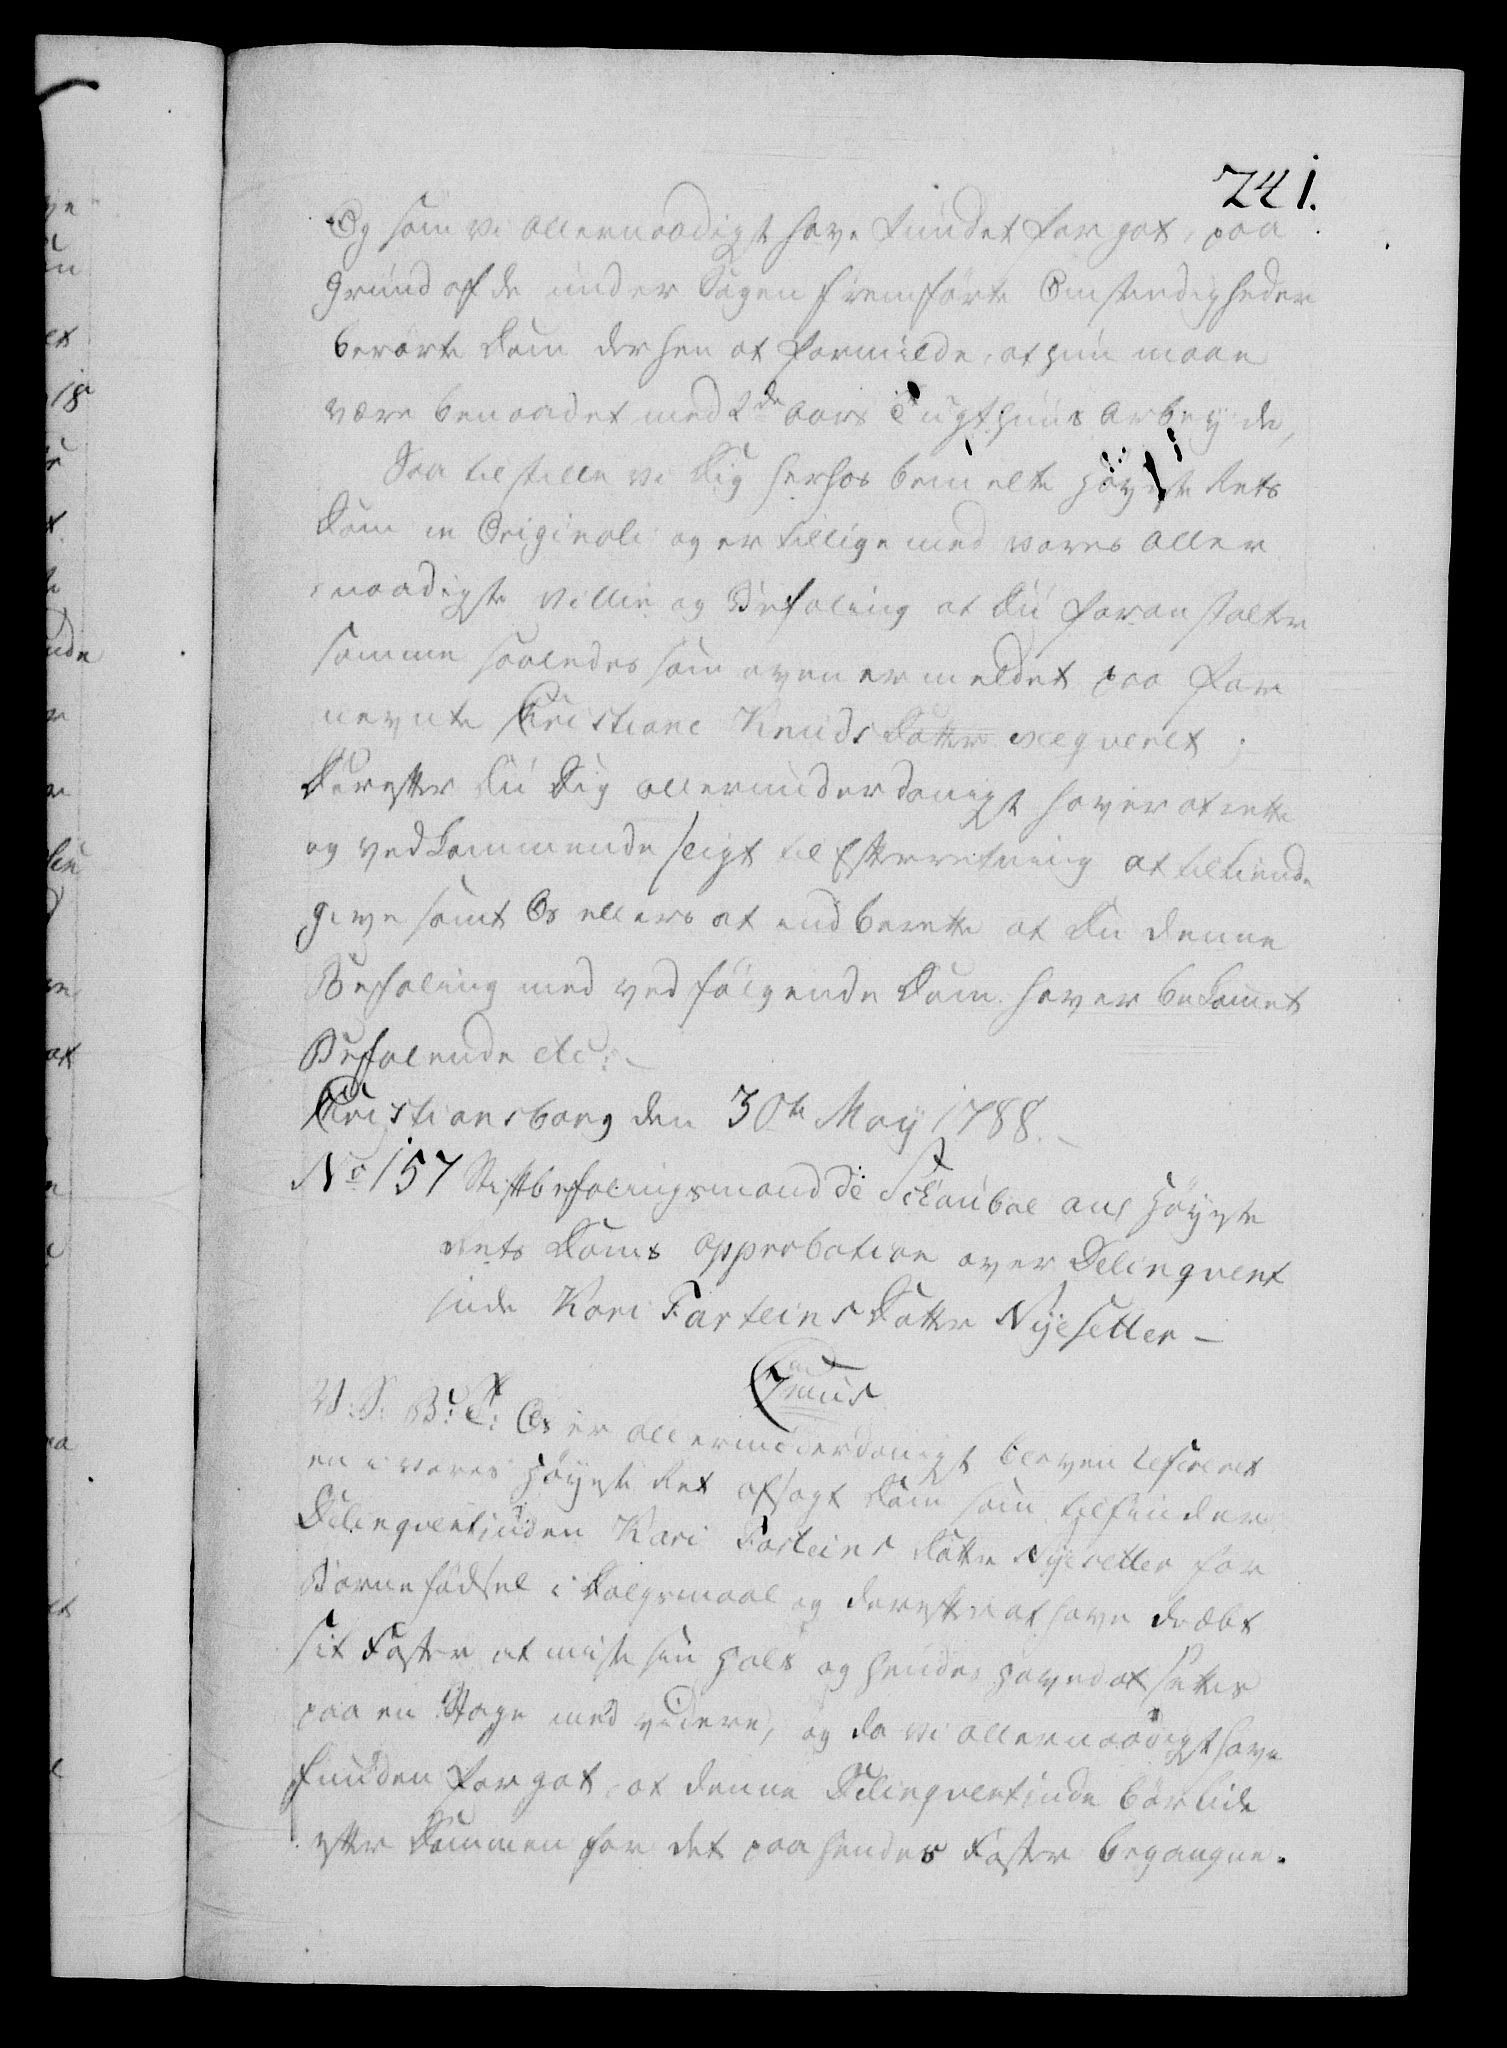 241.
Og som vi allernaadigst have fundet for got, paa
Grund af de under Sagen fremførte Omstendigheder
berørte Dom derhen at formilde, at hun maae
være benaadet med 2de Aars Tugthuus Arbeyde,
Saa tilstille vi Dig herhos bemelte Høyeste Rets
Dom in Originali og er tillige med vores Aller
naadigste Villie og Befaling at Du foranstalter
samme saaledes som oven er meldet paa for
nevnte Christiane Knuds Datter exeqveret;
Derefter Du Dig allerunderdanigst haver at rette
og vedkommende sligt til Efterretning at tilkiende
give samt Os ellers at indberette at Du denne
Befaling med ved følgende Dom haver bekomet
Befalende etc:
Christiansborg den 30te May 1788.
No 157 Stiftbefalingsmand de Schouboe ang Høyeste
Rets Doms Approbation over Delinqvent
inde Kari Farteins Datter Nyesetter
C 7mus
V: S: B: T: Os er allerunderdanigst bleven refereret
en i vores Høyeste Ret afsagt Dom som tilfinder
Delinqventinden Kari Farteins Datter Nyesetter for
Børnefødsel i Dølgsmaal og derefter at have dræbt
sit Foster at miste sin Hals og hendes Hoved at settes
paa en Stage med videre, og da vi allernaadigst have
funden for got, at denne Delinqventinde bør lide
efter Dommen for det paa hendes Foster begangne